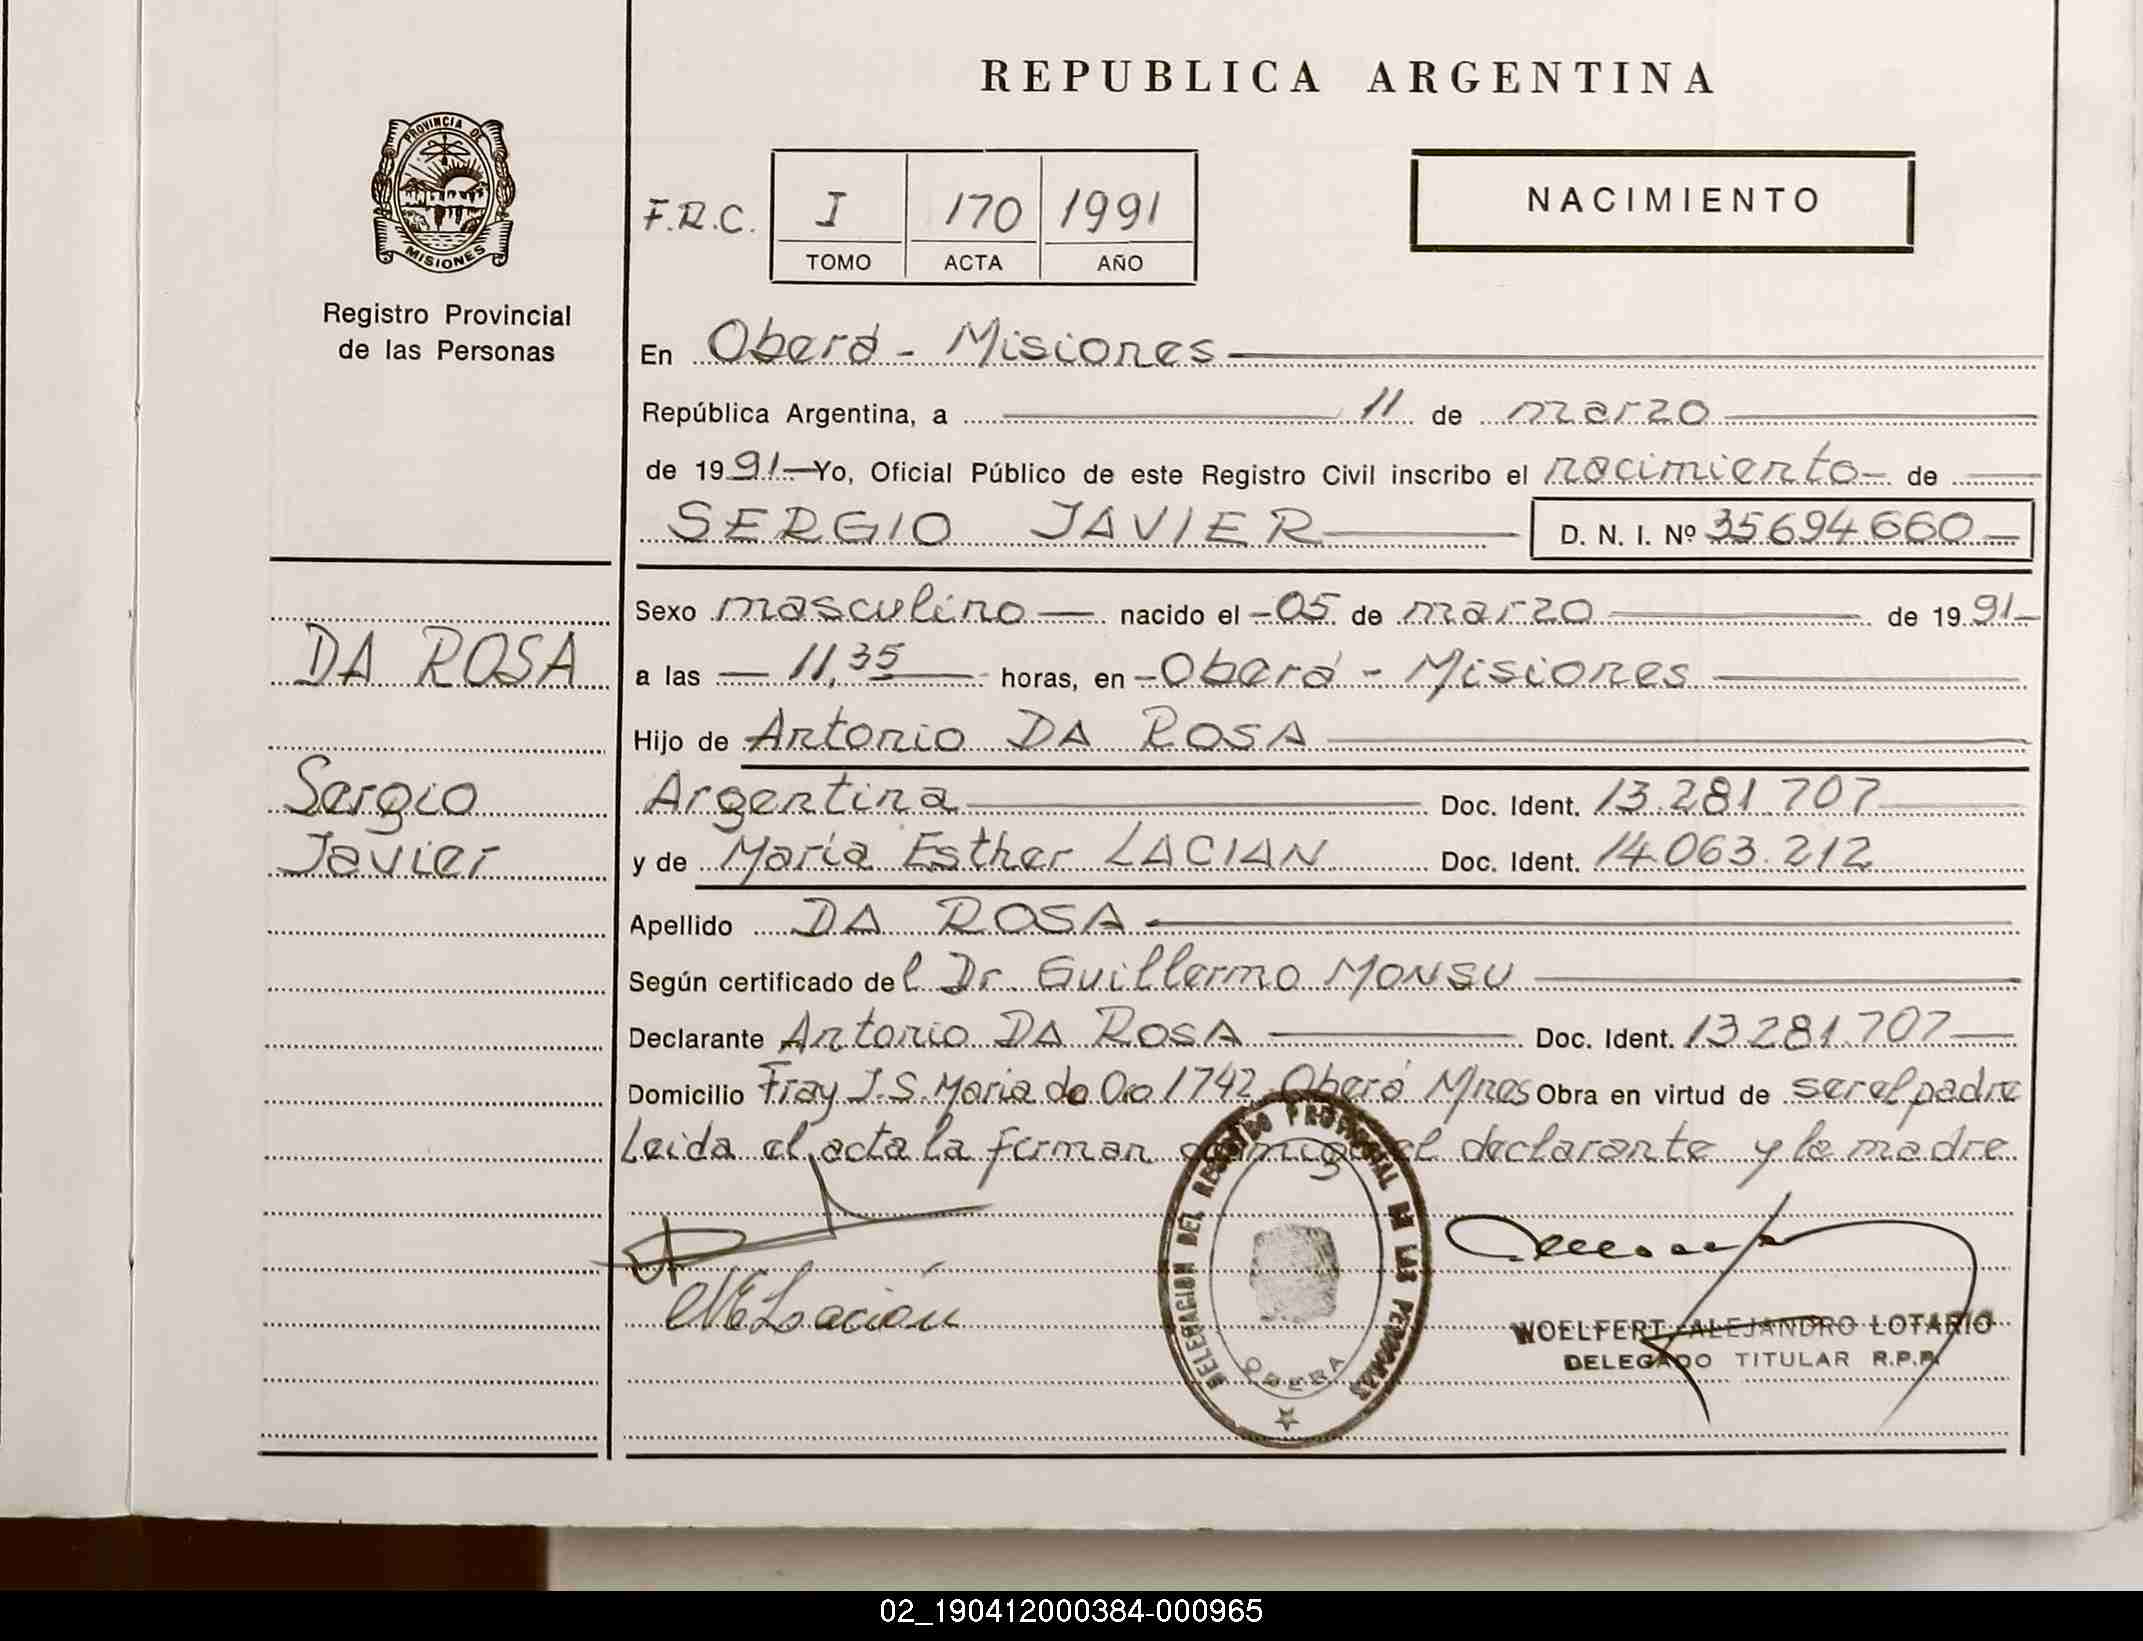 REPUBLICA ARGENTINA
PROVINCIA DE
MISIONES
Registro Provincial
de las Personas
F.R.C. I 170 1991
TOMO ACTA AÑO
NACIMIENTO
En Oberá - Misiones
República Argentina, a 11 de marzo
de 1991 Yo, Oficial Público de este Registro Civil inscribo el nacimiento de
SERGIO JAVIER D. N. I. Nº 35694660
DA ROSA
Sergio
Javier
Sexo masculino nacido el 05 de marzo de 1991
a las 11,35 horas, en Oberá - Misiones
Hijo de Antonio DA ROSA
Argentina Doc. Ident. 13.281.707
y de Maria Esther LACIAN Doc. Ident. 14.063.212
Apellido DA ROSA
Según certificado del Dr. Guillermo MONSU
Declarante Antonio DA ROSA Doc. Ident. 13.281.707
Domicilio Fray J.S. Maria de Oro 1742 Oberá Mnes Obra en virtud de ser el padre
Leida el acta la firman conmigo el declarante y la madre
DELEGACION DEL REGISTRO PROVINCIAL DE LAS PERSONAS
OBERA
WOELFERT ALEJANDRO LOTARIO
DELEGADO TITULAR R.P.P.
02_190412000384-000965